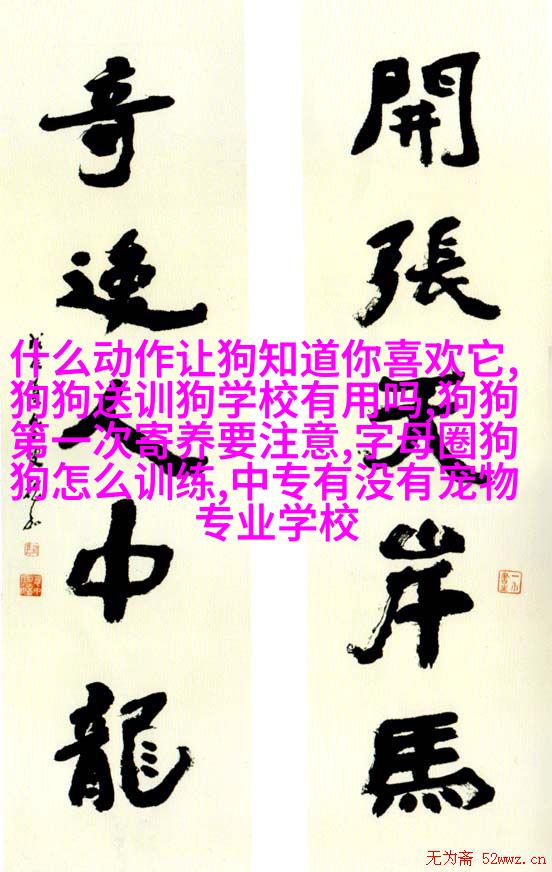 開張天岸馬
奇逸人中龍
什么动作让狗知道你喜欢它,
狗狗送训狗学校有用吗,狗狗
第一次寄养要注意,字母圈狗
狗怎么训练,中专有没有宠物
专业学校
无为斋 52wwz.cn